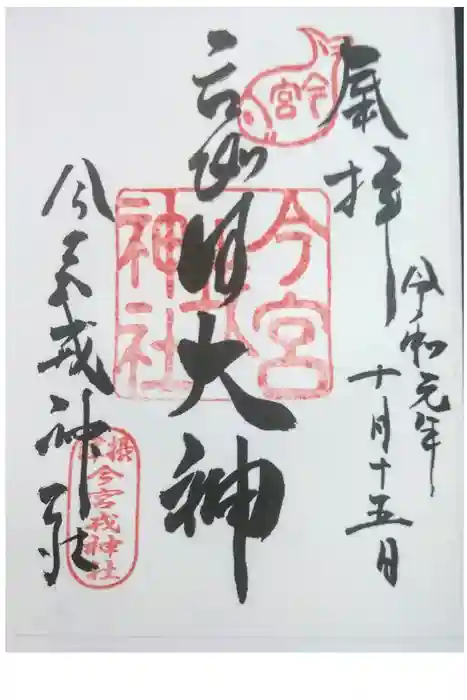 奉拝
令和元年
十月十五日
大神
今宮戎神社
今宮
今宮
神社
摂津
今宮戎神社